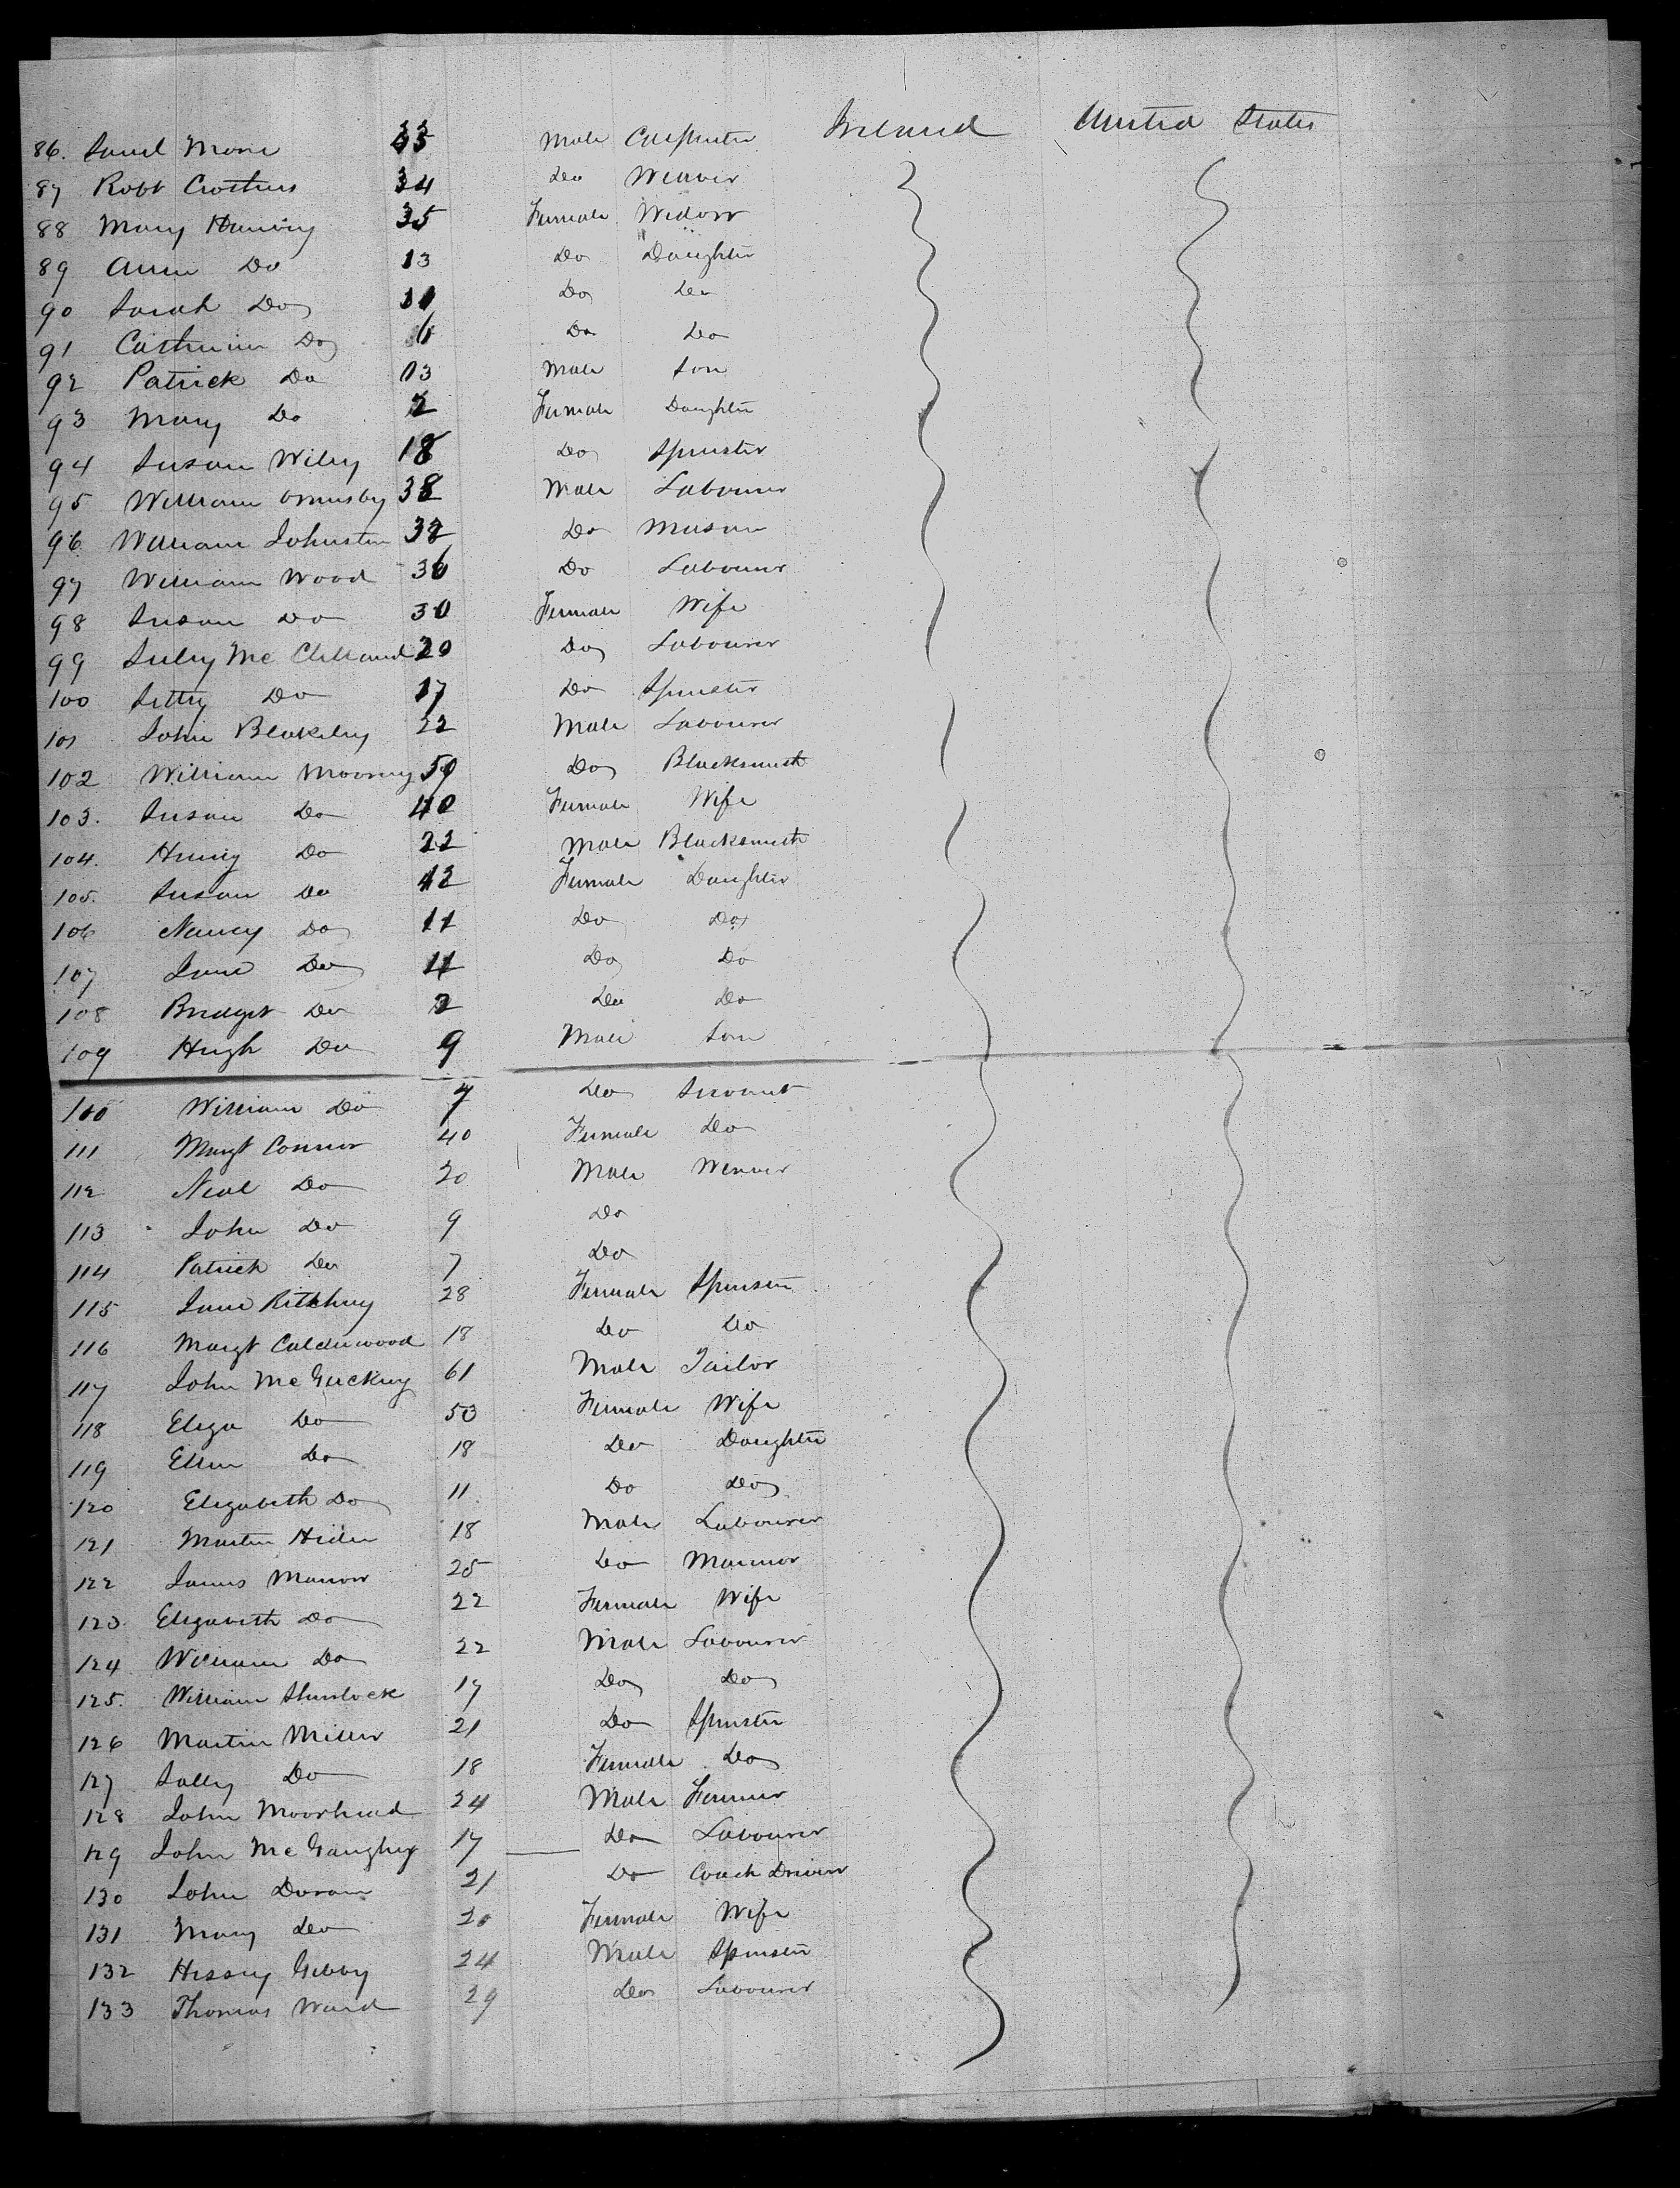 86. Saml Moore 33 Male Carpenter Ireland United States
87 Robt Crothers 34 Do Weaver
88 Mary Harvey 35 Female Widow
89 Anne Do 13 Do Daughter
90 Sarah Do Do Do
91 Catherine Do 6 Do Do
92 Patrick Do 03 Male Son
93 Mary Do 2 Female Daughter
94 Susan Wiley 18 Do Spinster
95 William Ormsby 38 Male Labourer
96 William Johnston 32 Do Mason
97 William Wood 36 Do Labourer
98 Susan Do 30 Female Wife
99 McClelland 20 Do Labourer
100 Do 17 Do Spinster
101 John Blakeley 22 Male Labourer
102 William Mooney 50 Do Blacksmith
103. Susan Do 40 Female Wife
104. Henry Do 22 Male Blacksmith
105. Susan Do 12 Female Daughter
106 Nancy Do 11 Do Do
107 Jane Do 4 Do Do
108 Bridget Do 2 Do Do
109 Hugh Do 9 Male Son
110 William Do 7 Do Servant
111 Margt Connor 40 Female Do
112 Neal Do 20 Male Weaver
113 John Do 9 Do
114 Patrick Do 7 Do
115 Jane Ritchey 28 Female Spinster
116 Margt Calderwood 18 Do Do
117 John McGuckey 61 Male Tailor
118 Eliza Do 50 Female Wife
119 Ellen Do 18 Do Daughter
120 Elizabeth Do 11 Do Do
121 Martin Hider 18 Male Labourer
122 James Marrow 25 Do Marinor
123. Elizabeth Do 22 Female Wife
124 William Do 22 Male Labourer
125. William Shurlock 17 Do Do
126 Martin Miller 21 Do Spinster
127 Sally Do 18 Female Do
128 John Moorhead 24 Male Farmer
129 John McGaughey 17 Do Labourer
130 John Doran 21 Do Coach Driver
131 Mary Do 20 Female Wife
132 Hessey Gibby 24 Male Spinster
133 Thomas Ward 29 Do Labourer